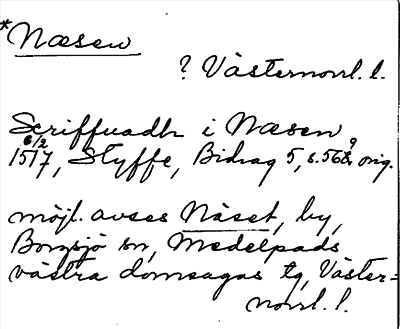 *Næsen
? Västernorrl. l.
Scriffuadh i Næsen
6/2 1517, Styffe, Bidrag 5, s. 568, orig.
möjl. avses Näset, by,
Borgsjö sn, Medelpads
västra domsagas tg, Väster=
norrl. l.